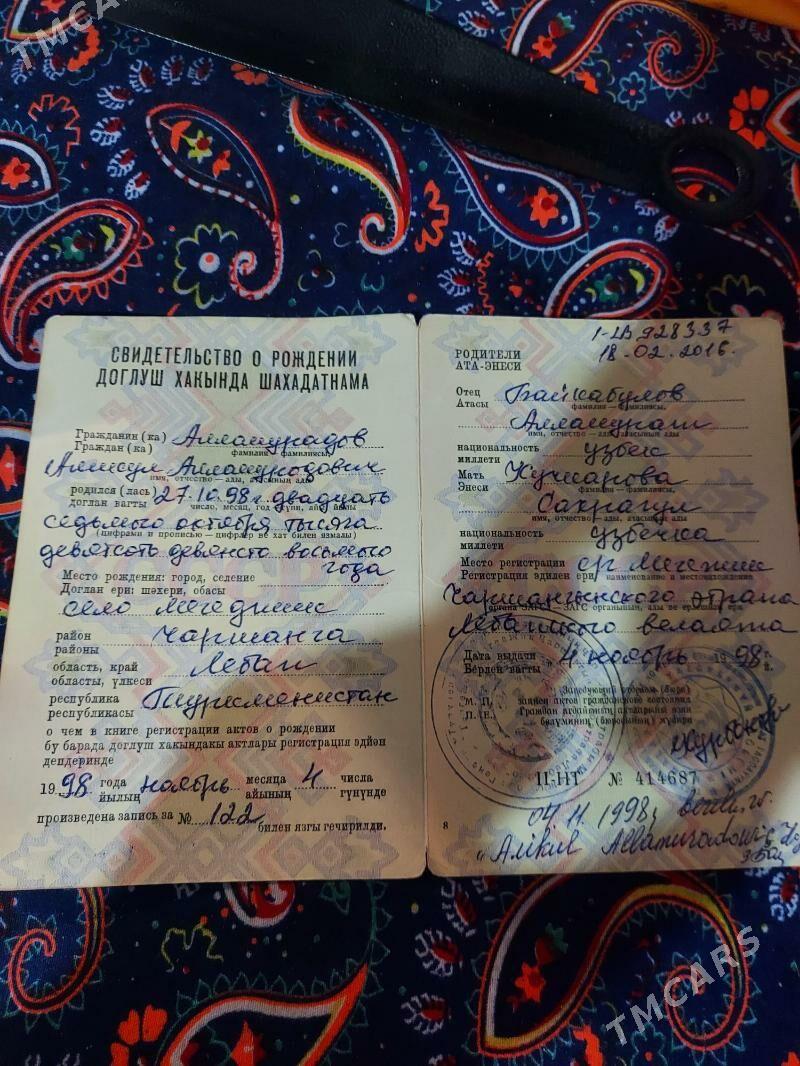 TMCARS
СВИДЕТЕЛЬСТВО О РОЖДЕНИИ
ДОГЛУШ ХАКЫНДА ШАХАДАТНАМА
Гражданин (ка) Алламурадов
Граждан (ка) фамилия — фамилиясы
Аликул Алламуродович
имя, отчество — ады, атасының ады
родился (лась) 27.10.98 г. двадцать
доглан вагты число, месяц, год гүни, айы, йылы
седьмого октября тысяга
(цифрами и прописью — цифрлер ве хат билен язмалы)
девятсоть девяносто восьмого
года
Место рождения: город, селение
Доглан ери: шәхери, обасы
село Мегеджик
район Чаршанга
районы
область, край Лебап
области, үлкеси
республика Туркменистан
республикасы
о чем в книге регистрации актов о рождении
бу барада доглуш хакындакы актлары регистрация эдйән
депдеринде
1998 года ноябрь месяца 4 числа
йылың айының гүнүнде
произведена запись за № 122 билен язгы гечирилди.
I-LB 928337
18-02.2016.
РОДИТЕЛИ
АТА-ЭНЕСИ
Отец Байкабулов
Атасы фамилия — фамилиясы,
Алламурат
имя, отчество — ады, атасының ады
национальность узбек
миллети
Мать Кучкарова
Энеси фамилия — фамилиясы,
Сахрагул
имя, отчество — ады, атасының ады
национальность узбечка
миллети
Место регистрации
Регистрация эдилен ери наименование и местонахождение
Чаршангынского этрапа
органа ЗАГС — ЗАГС органының, ады ве ерлешен ери
Лебапского велаята
Дата выдачи „4 ноябрь 1998 г.
Берлен вагты й.
Заведующий отделом (бюро)
М. П. записи актов гражданского состояния
П. Е. Граждан ягдайының актларыны язян
бөлүминиң (бюросының) мүдири
II-НТ № 414687
04.11.1998ý berildi
8
Alikul Allamuradowiç
TMCARS